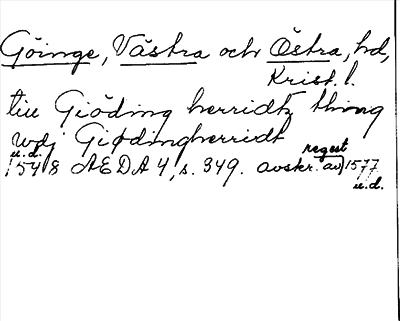 Göinge, Västra och Östra, hd,
Krist. l.
till Giöding herridtz thing
wdj Giødingherridt
u.d. regest
1548 AEDA 4, s. 349. avskr. av) 1577
u.d.